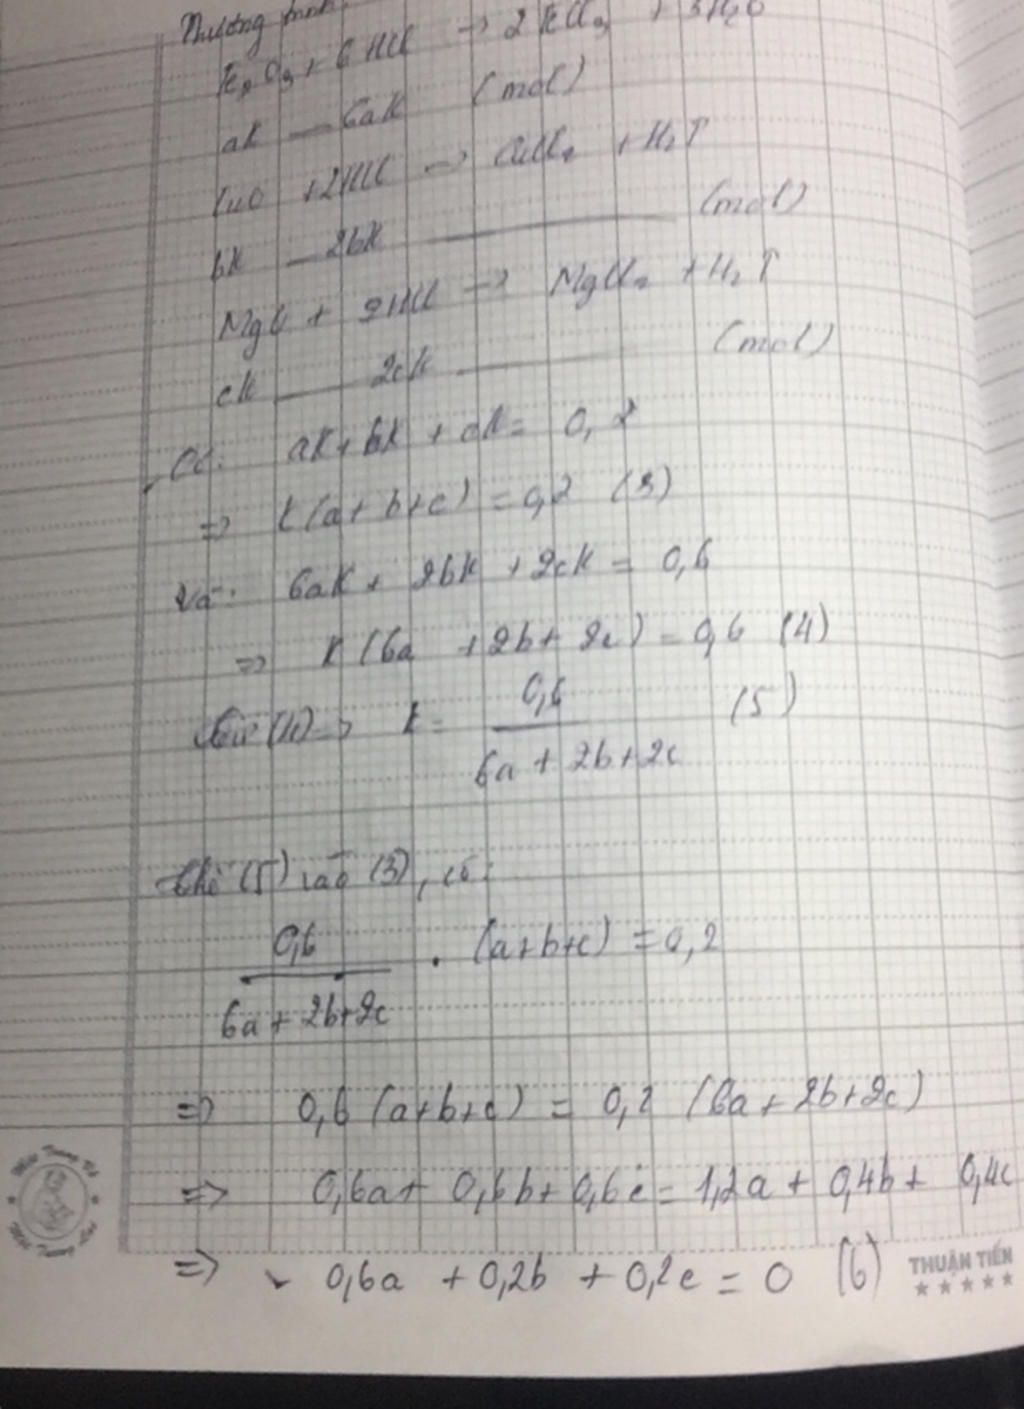 Phương trình:
Fe₂O₃ + 6HCl → 2FeCl₃ + 3H₂O
ak — 6ak (mol)
CuO + 2HCl → CuCl₂ + H₂↑
bk — 2bk — (mol)
MgO + 2HCl → MgCl₂ + H₂↑
ck — 2ck — (mol)
Có: ak + bk + ck = 0,2
=> k(a + b + c) = 0,2 (3)
Và: 6ak + 2bk + 2ck = 0,6
=> k(6a + 2b + 2c) = 0,6 (4)
Từ (4) => k = 0,6 / (6a + 2b + 2c) (5)
Thế (5) vào (3), có:
0,6 / (6a + 2b + 2c) . (a + b + c) = 0,2
=> 0,6 (a + b + c) = 0,2 (6a + 2b + 2c)
=> 0,6a + 0,6b + 0,6c = 1,2a + 0,4b + 0,4c
=> - 0,6a + 0,2b + 0,2c = 0 (6)
THUẬN TIẾN